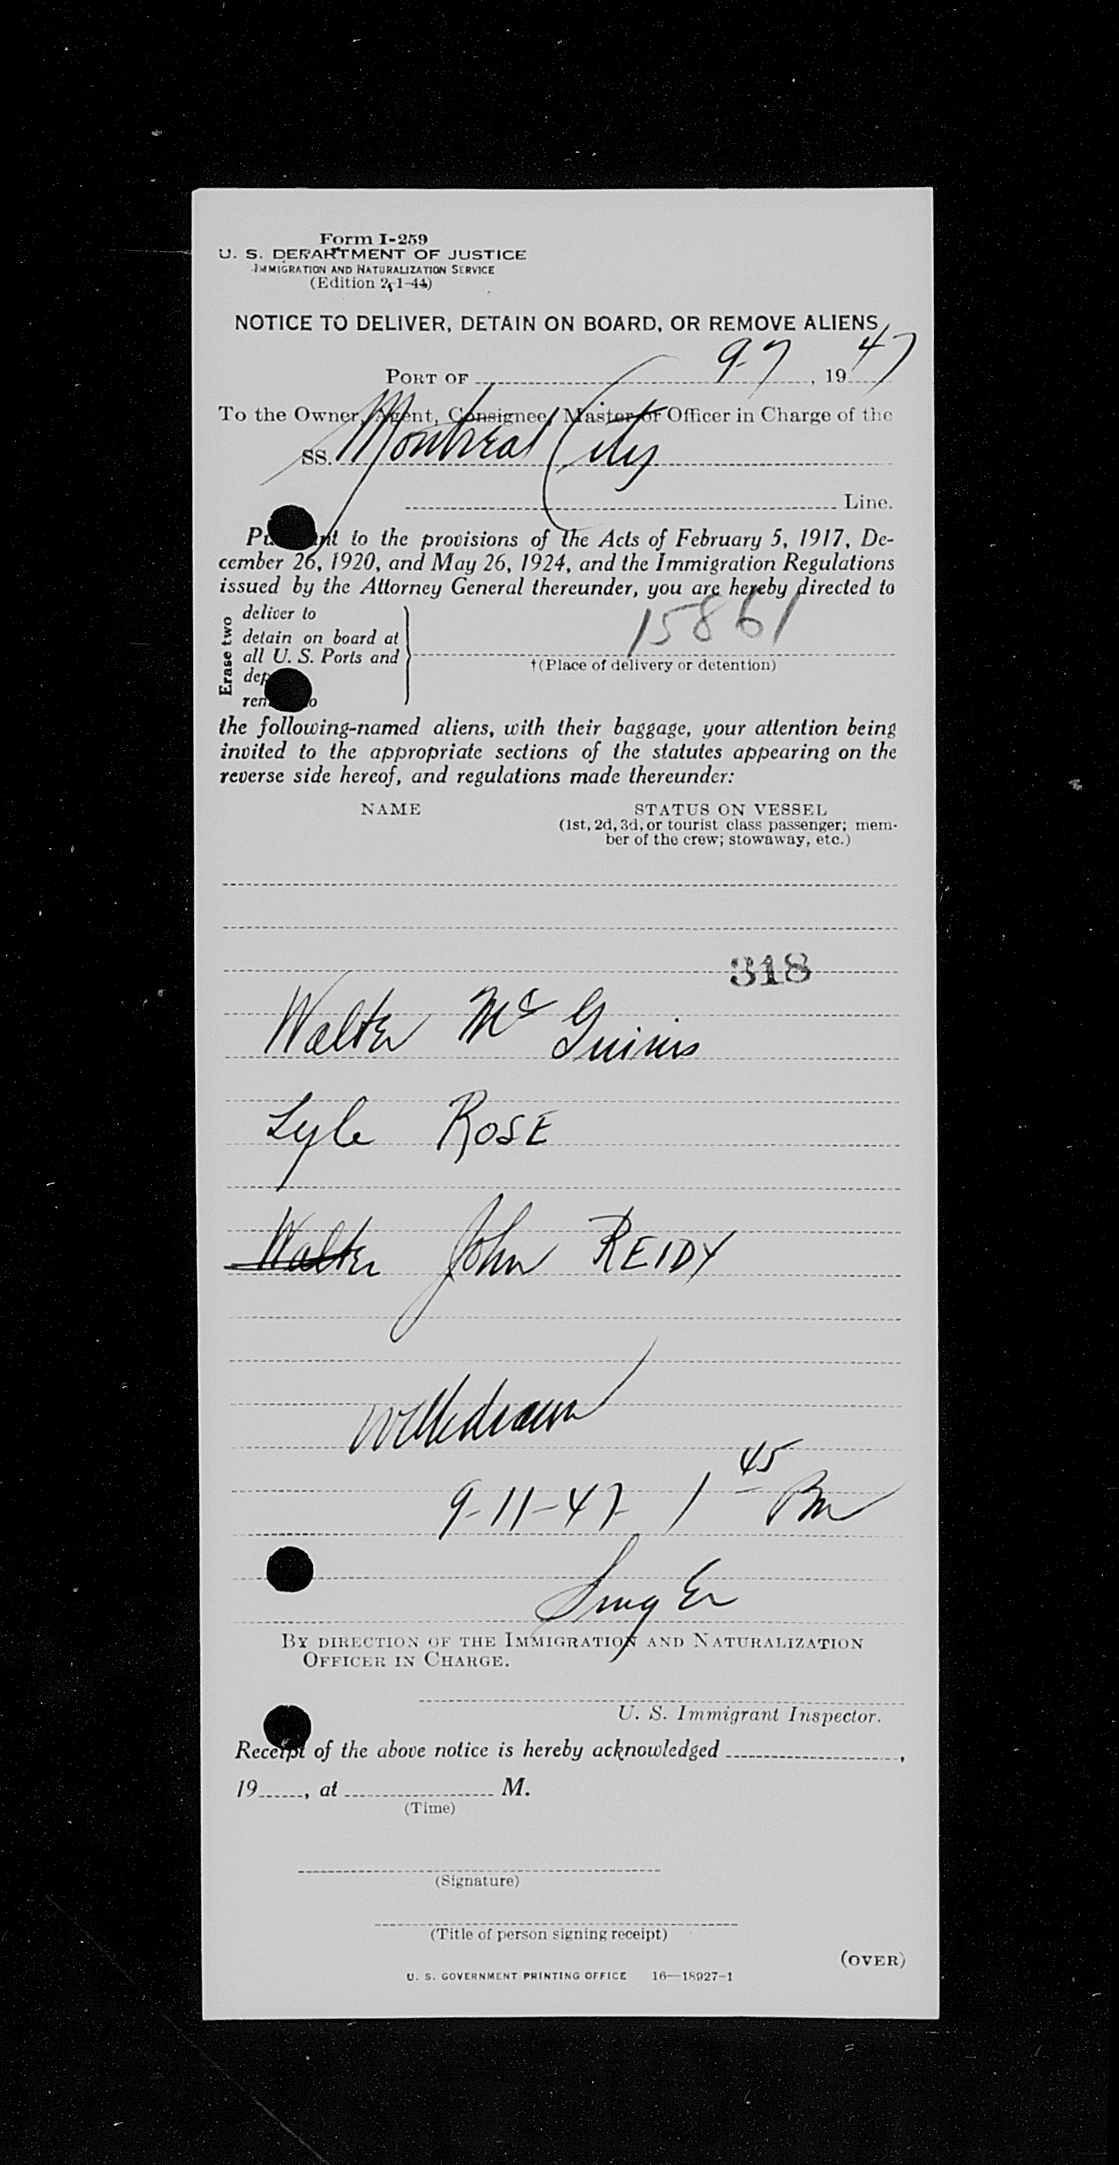 Form I-259
U. S. DEPARTMENT OF JUSTICE
IMMIGRATION AND NATURALIZATION SERVICE
(Edition 2-1-44)
NOTICE TO DELIVER, DETAIN ON BOARD, OR REMOVE ALIENS
PORT OF 9-7, 1947
To the Owner, Agent, Consignee, Master or Officer in Charge of the
SS. Montreal City
Line.
Pursuant to the provisions of the Acts of February 5, 1917, De-
cember 26, 1920, and May 26, 1924, and the Immigration Regulations
issued by the Attorney General thereunder, you are hereby directed to
15861
Erase two
deliver to
detain on board at
all U. S. Ports and
†(Place of delivery or detention)
remove to
the following-named aliens, with their baggage, your attention being
invited to the appropriate sections of the statutes appearing on the
reverse side hereof, and regulations made thereunder:
NAME STATUS ON VESSEL
(1st, 2d, 3d, or tourist class passenger; mem-
ber of the crew; stowaway, etc.)
318
Walter Mc Guinis
Lyle ROSE
Walter John REIDY
Withdrawn
9-11-47 1 45 Pm
BY DIRECTION OF THE IMMIGRATION AND NATURALIZATION
OFFICER IN CHARGE.
U. S. Immigrant Inspector.
Receipt of the above notice is hereby acknowledged ,
19 , at M.
(Time)
(Signature)
(Title of person signing receipt)
(OVER)
U. S. GOVERNMENT PRINTING OFFICE 16—18927-1